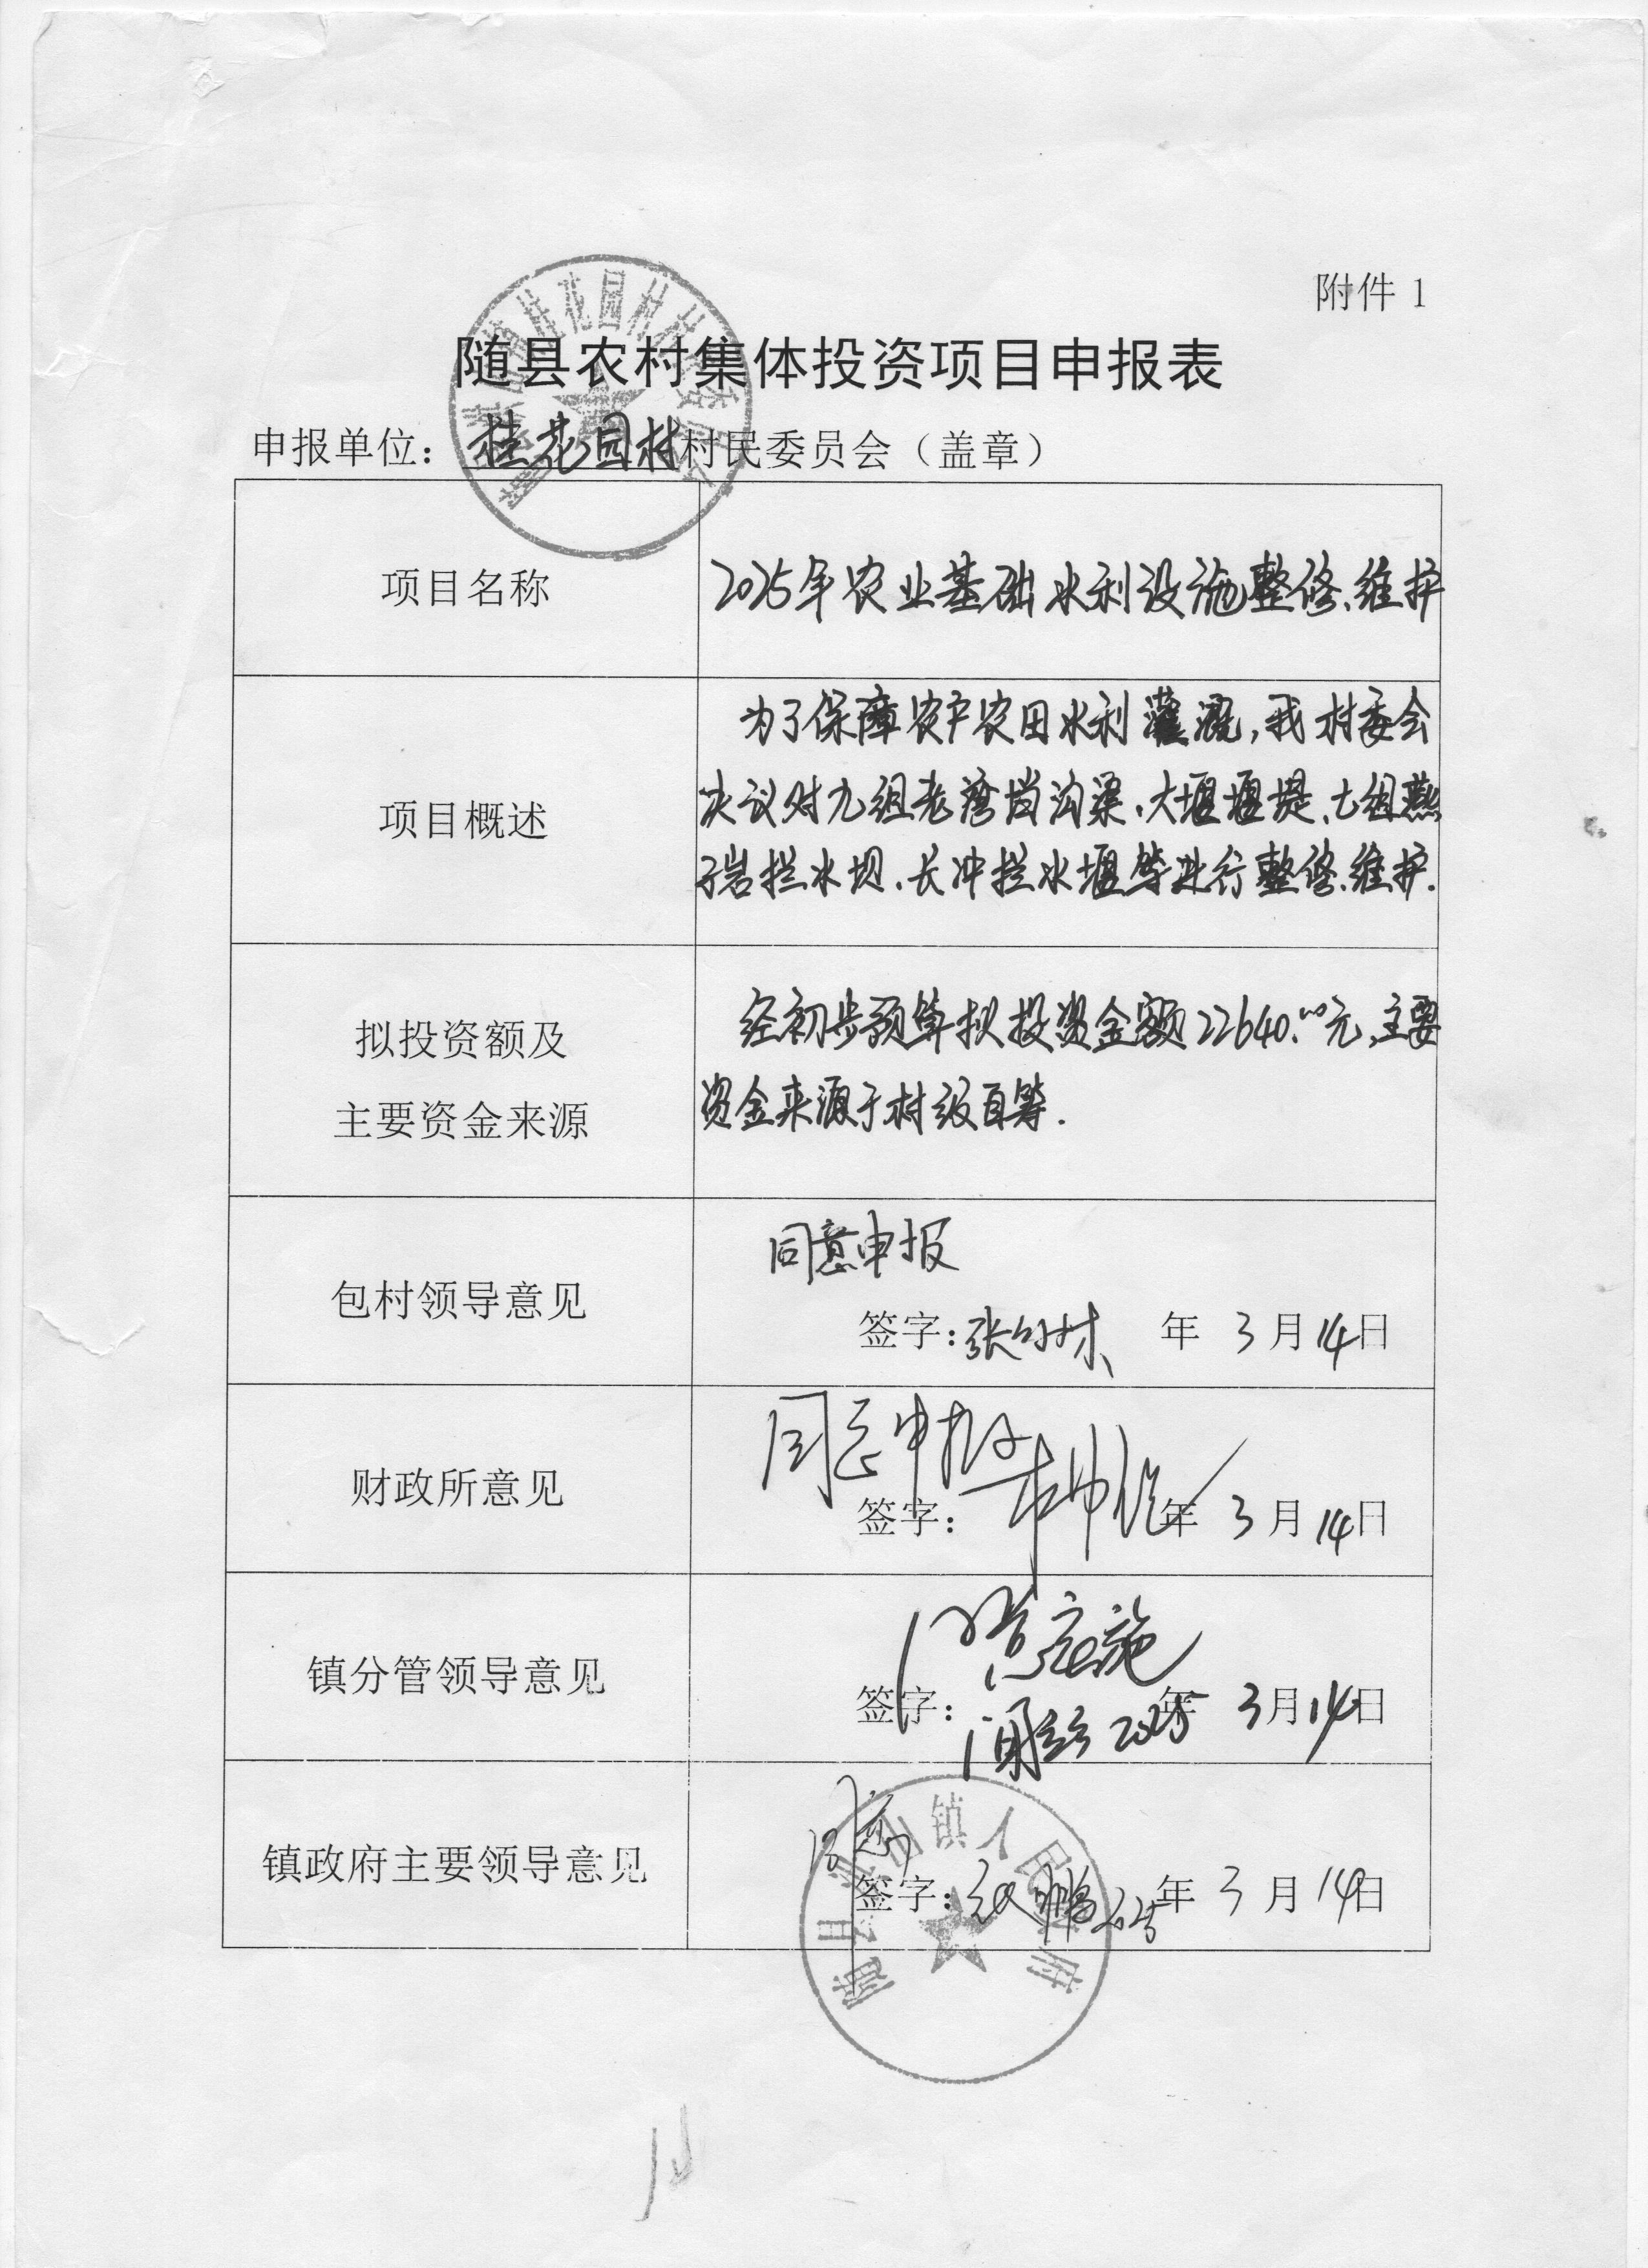 附件 1
随县农村集体投资项目申报表
申报单位：桂花园村村民委员会（盖章）
项目名称
2025年农业基础水利设施整修、维护
项目概述
为了保障农户农田水利灌溉，我村委会
决议对九组老湾垱沟渠、大堰堰堤、七组燕
子岩拦水坝、长冲拦水堰等进行整修、维护.
拟投资额及
主要资金来源
经初步预算拟投资金额22640.00元，主要
资金来源于村级自筹.
包村领导意见
同意申报
签字： 年 3 月 14 日
财政所意见
同意申报
签字： 年 3 月 14 日
镇分管领导意见
签字： 2025 年 3 月 14 日
镇政府主要领导意见
同意
签字： 2025 年 3 月 14 日
镇人民政府